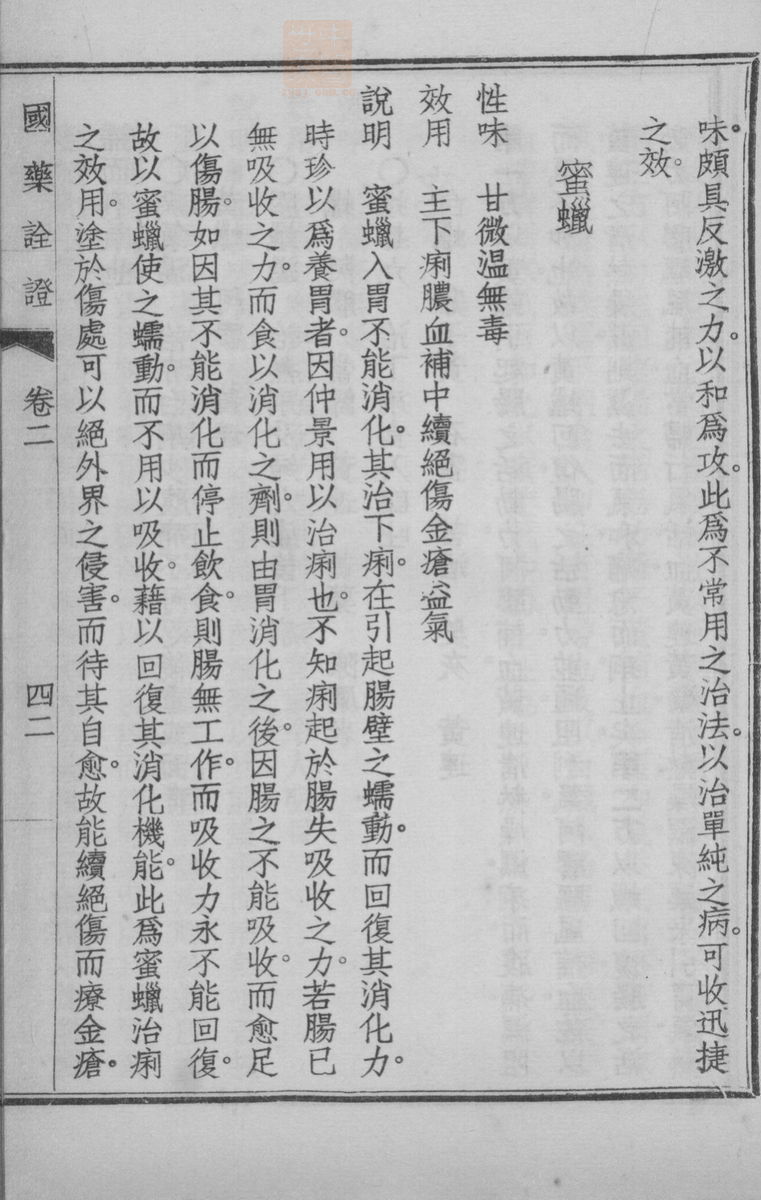 味。頗具反激之力。以和爲攻。此爲不常用之治法。以治單純之病。可收迅捷
之效。
蜜蠟
性味　甘微温無毒
效用　主下痢膿血補中續絕傷金瘡益氣
說明　蜜蠟入胃不能消化。其治下痢。在引起腸壁之蠕動。而回復其消化力。
時珍以爲養胃者。因仲景用以治痢也。不知痢起於腸失吸收之力。若腸已
無吸收之力。而食以消化之劑。則由胃消化之後。因腸之不能吸收。而愈足
以傷腸。如因其不能消化而停止飲食。則腸無工作。而吸收力永不能回復。
故以蜜蠟使之蠕動。而不用以吸收。藉以回復其消化機能。此爲蜜蠟治痢
之效用。塗於傷處可以絕外界之侵害。而待其自愈。故能續絕傷而療金瘡。
國藥詮證　卷二　四二